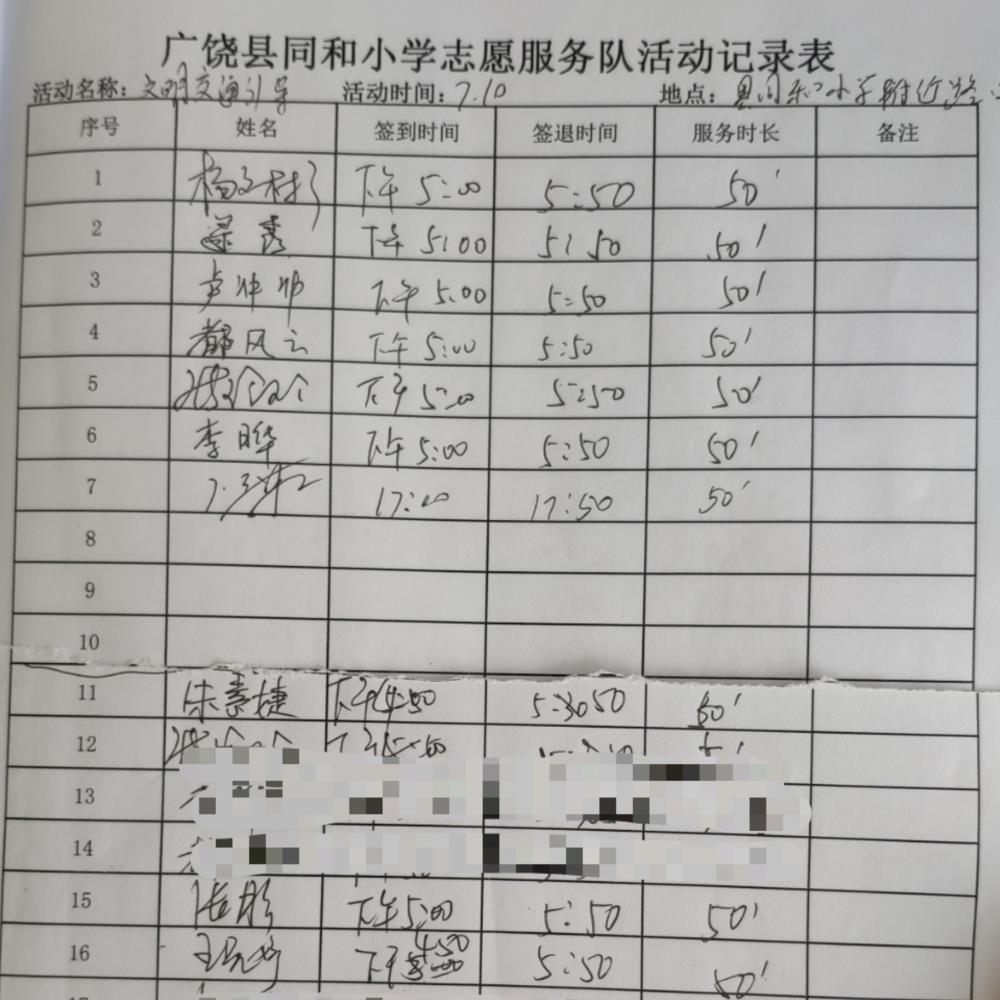 广饶县同和小学志愿服务队活动记录表
活动名称：文明交通引导 活动时间：7.10 地点：同和小学附近路
序号 姓名 签到时间 签退时间 服务时长 备注
1 下午5:00 5:50 50'
2 梁秀 下午5:00 5:50 50'
3 卢帅帅 下午5:00 5:50 50'
4 都风云 下午5:00 5:50 50'
5 下午5:00 5:50 50'
6 李晔 下午5:00 5:50 50'
7 17:00 17:50 50'
8
9
10
11 朱素捷 下午4:50 5:50 50'
12
13
14
15 张彤 下午5:00 5:50 50'
16 下午4:50 5:50 50'